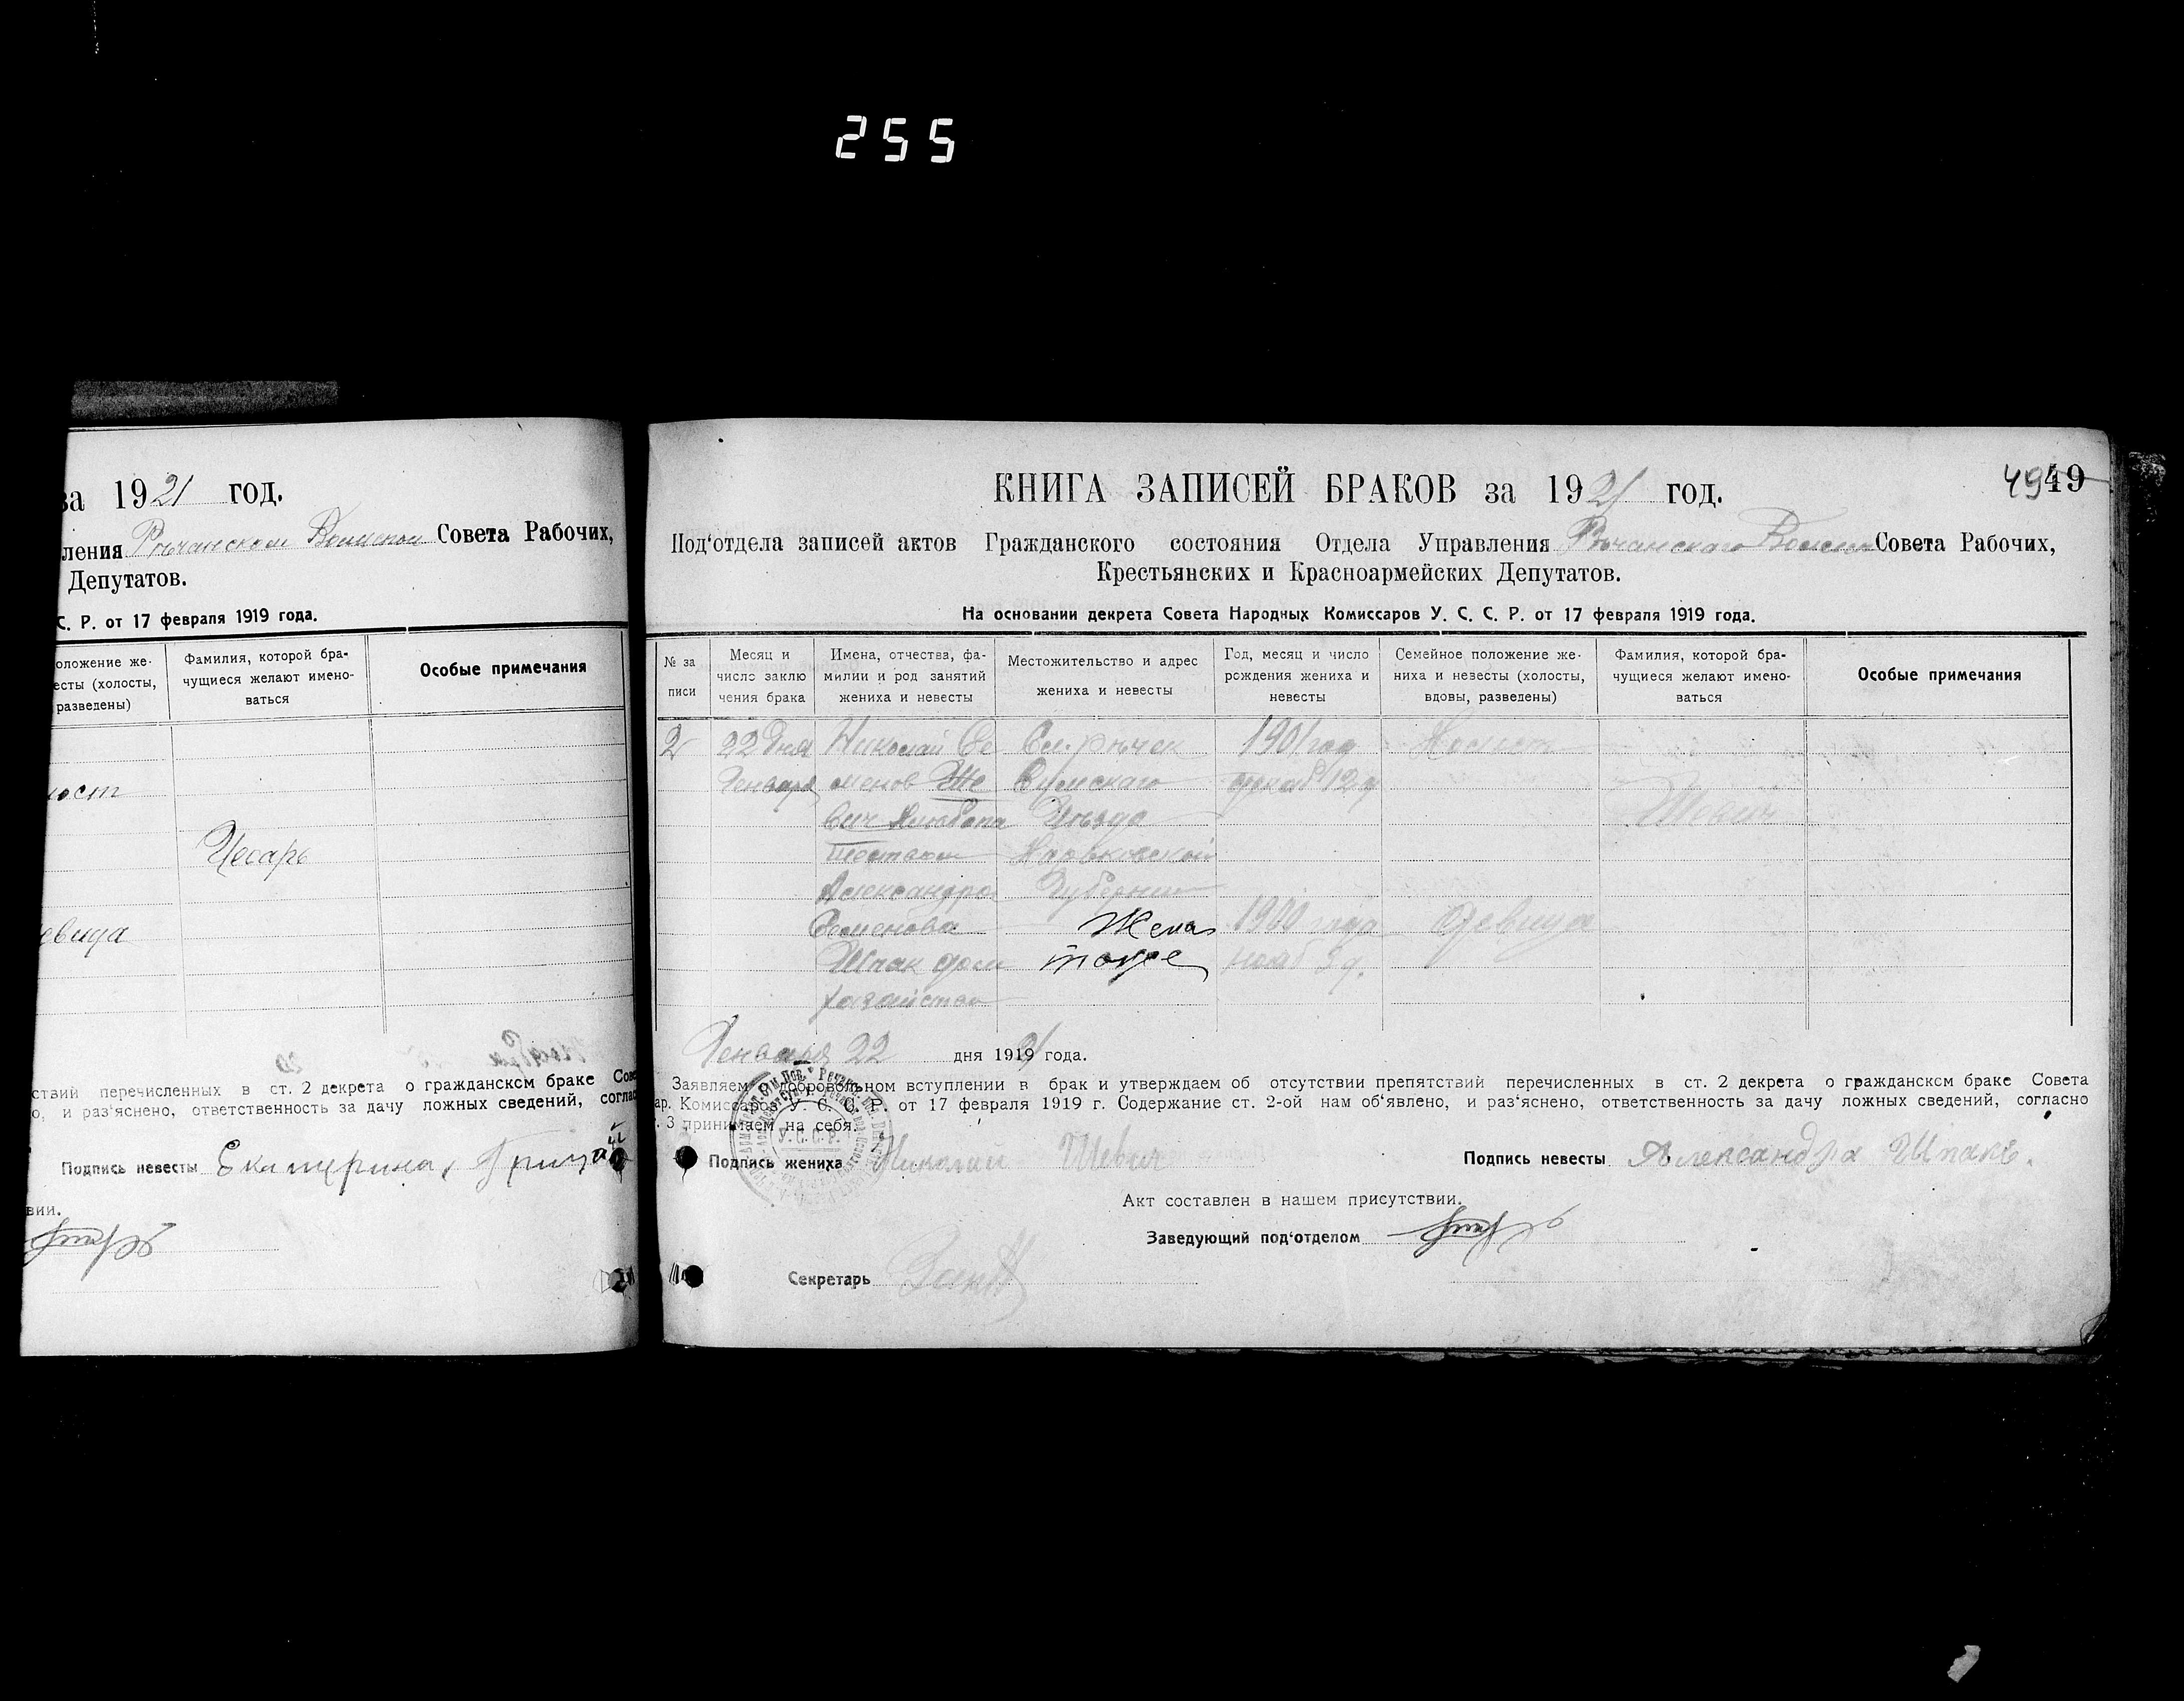 255
за 1921 год.
ления Речанском Совета Рабочих,
Депутатов.
С. Р. от 17 февраля 1919 года.
оложение же-
есты (холосты,
разведены)
Фамилия, которой бра-
чущиеся желают имено-
ваться
Особые примечания
ост
Чесарь
евица
ствий перечисленных в ст. 2 декрета о гражданском браке Сове
о, и раз'яснено, ответственность за дачу ложных сведений, соглас
Подпись невесты Екатерина
вии.
49 49
КНИГА ЗАПИСЕЙ БРАКОВ за 1921 год.
Под'отдела записей актов Гражданского состояния Отдела Управления Речанскаго Совета Рабочих,
Крестьянских и Красноармейских Депутатов.
На основании декрета Совета Народных Комиссаров У. С. С. Р. от 17 февраля 1919 года.
№ за
писи
Месяц и
число заклю
чения брака
Имена, отчества, фа-
милии и род занятий
жениха и невесты
Местожительство и адрес
жениха и невесты
Год, месяц и число
рождения жениха и
невесты
Семейное положение же-
ниха и невесты (холосты,
вдовы, разведены)
Фамилия, которой бра-
чущиеся желают имено-
ваться
Особые примечания
2
22 дня
Генваря
Николай Се
менов Ше
вич Хлебопа
шество
Александра
Семенова
Шпак дом
хозяйство
Сл. Речек
Сумскаго
Уезда
Харьковской
Губернии
Жена
тоже
1901 год
декаб 12 д
1900 года
нояб 3 д.
Холост
девица
Шевич
Генваря 22 дня 1921 года.
Заявляем о добровольном вступлении в брак и утверждаем об отсутствии препятствий перечисленных в ст. 2 декрета о гражданском браке Совета
ар. Комиссаров У. С. С. Р. от 17 февраля 1919 г. Содержание ст. 2-ой нам об'явлено, и раз'яснено, ответственность за дачу ложных сведений, согласно
. 3 принимаем на себя.
У.С.С.Р.
Подпись жениха Николай Шевич
Подпись невесты Александра Шпакъ.
Акт составлен в нашем присутствии.
Заведующий под'отделом
Секретарь